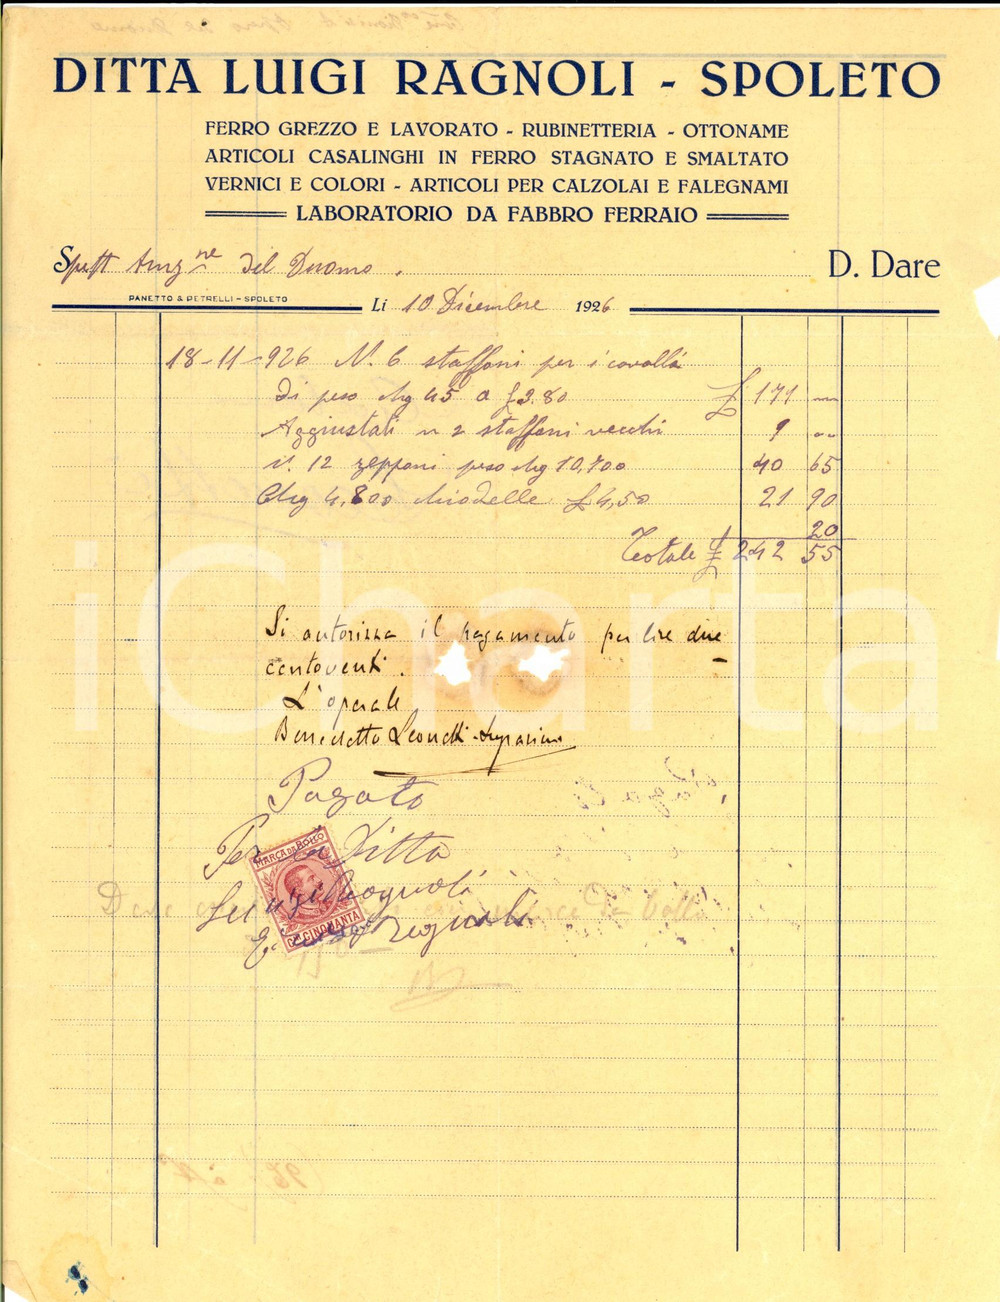 DITTA LUIGI RAGNOLI - SPOLETO
FERRO GREZZO E LAVORATO - RUBINETTERIA - OTTONAME
ARTICOLI CASALINGHI IN FERRO STAGNATO E SMALTATO
VERNICI E COLORI - ARTICOLI PER CALZOLAI E FALEGNAMI
LABORATORIO DA FABBRO FERRAIO
Spett Amz ne del Duomo. D. Dare
PANETTO & PETRELLI - SPOLETO
Li 10 Dicembre 1926
18-11-926 N. 6 staffoni per i cavalli
di peso Chg 45 a £ 3.80 £ 171 —
Aggiustati n 2 staffoni vecchi 9 --
n. 12 zepponi peso Chg 10,700 40 65
Chg 4,800 chiodelle £ 4,50 21 90
20
Totale £ 242 55
Si autorizza il pagamento per lire due
centoventi.
L'operale
Benedetto Leonetti
Pagato
Per la Ditta
Luigi Ragnoli
Ragnoli
MARCA DA BOLLO
C. CINQUANTA
iCharta